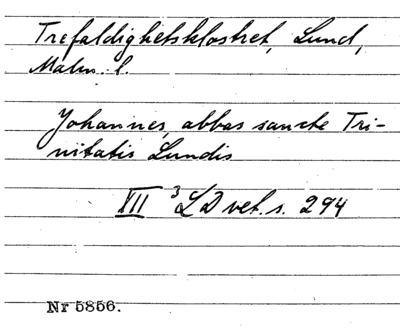 Trefaldighetsklostret, Lund,
Malm. l.
Johannes, abbas sancte Tri-
nitatis Lundis
VII ³LD vet. s. 294
Nr 5856.